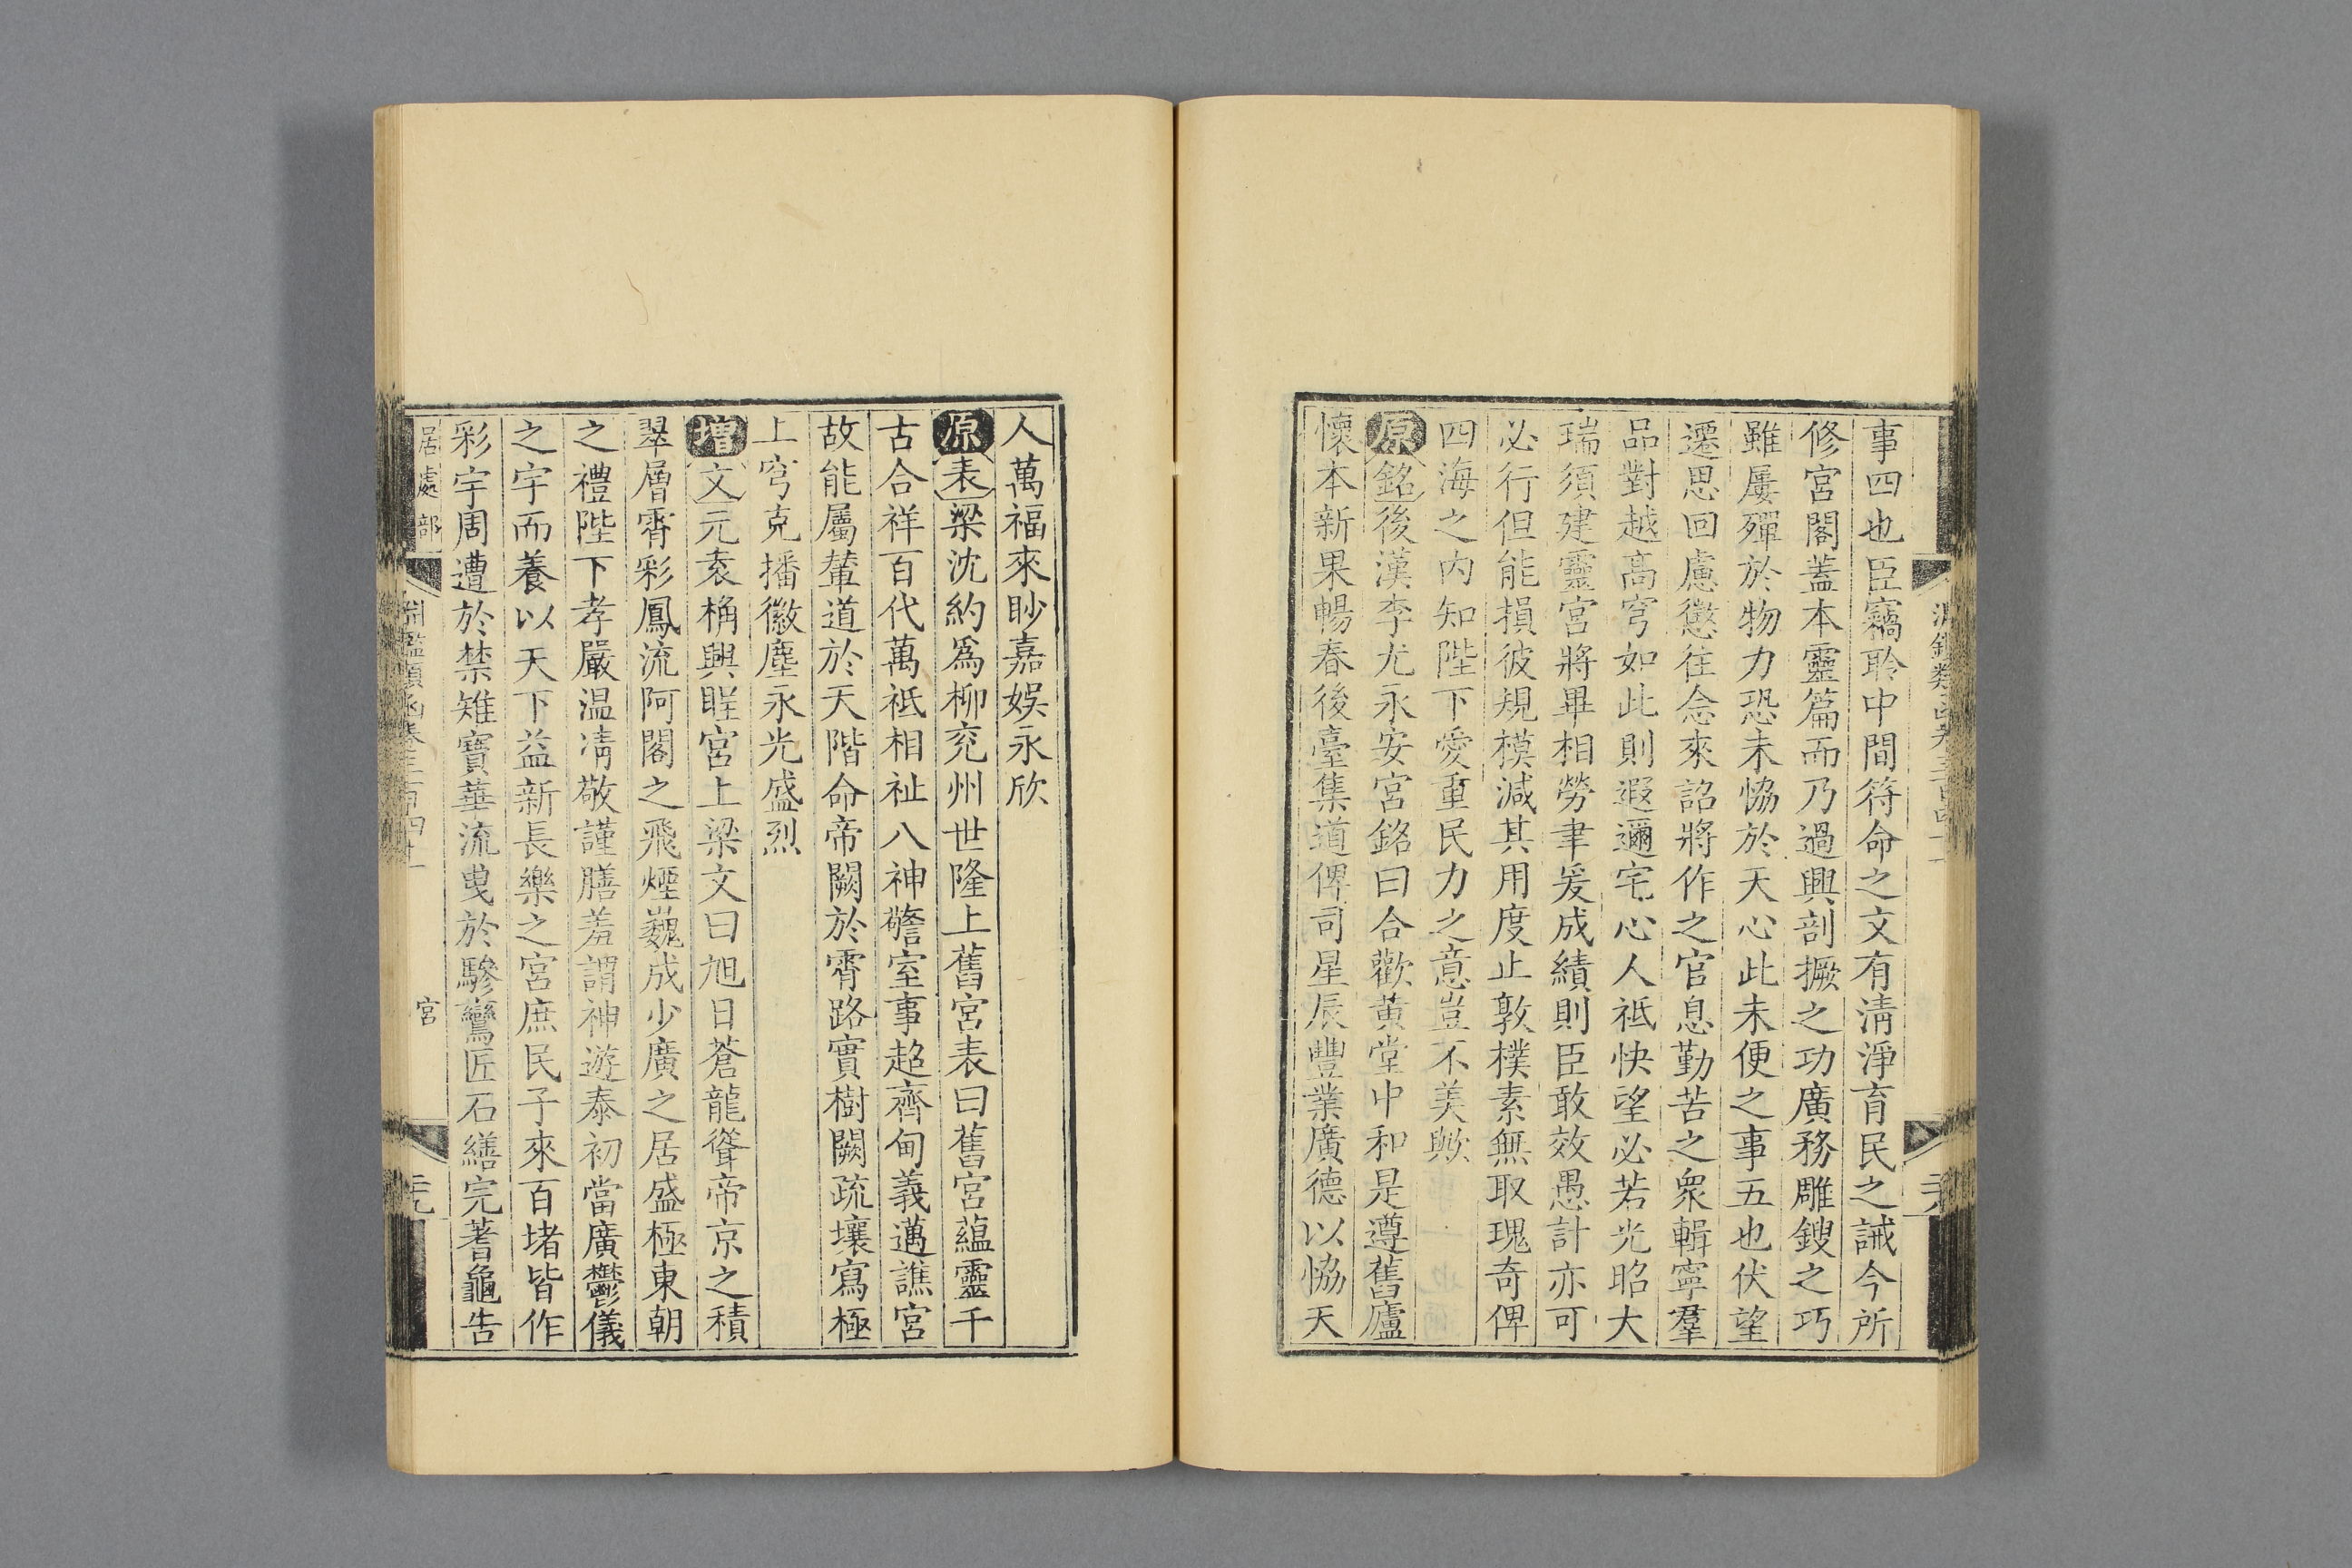 事四也臣竊聆中間符命之文有清淨育民之誡今所
修宮閣蓋本靈篇而乃過興剖撅之功廣務雕鎪之巧
雖屢殫於物力恐未恊於天心此未便之事五也伏望
遷思回慮懲往念來詔將作之官息勤苦之衆輯寧羣
品對越高穹如此則遐邇宅心人祇快望必若光昭大
瑞須建靈宮將畢相勞聿爰成績則臣敢效愚計亦可
必行但能損彼規模減其用度止敦樸素無取瑰奇俾
四海之內知陛下愛重民力之意豈不美歟
原銘後漢李尤永安宮銘曰合歡黃堂中和是遵舊廬
懷本新果暢春後臺集道俾司星辰豐業廣德以恊天
人萬福來眇嘉娛永欣
原表梁沈約爲柳兖州世隆上舊宮表曰舊宮蘊靈千
古合祥百代萬祇相祉八神警室事超齊甸義邁譙宮
故能屬輦道於天階命帝闕於霄路實樹闕疏壤寫極
上穹克播徽塵永光盛烈
增文元袁桷興聖宮上梁文曰旭日蒼龍聳帝京之積
翠層霄彩鳳流阿閣之飛煙巍成少廣之居盛極東朝
之禮陛下孝嚴温凊敬謹膳羞謂神遊泰初當廣鬱儀
之宇而養以天下益新長樂之宮庶民子來百堵皆作
彩宇周遭於禁雉寶華流曳於驂鸞匠石繕完蓍龜告
居處部 淵鑑類函卷三百四十一 宮